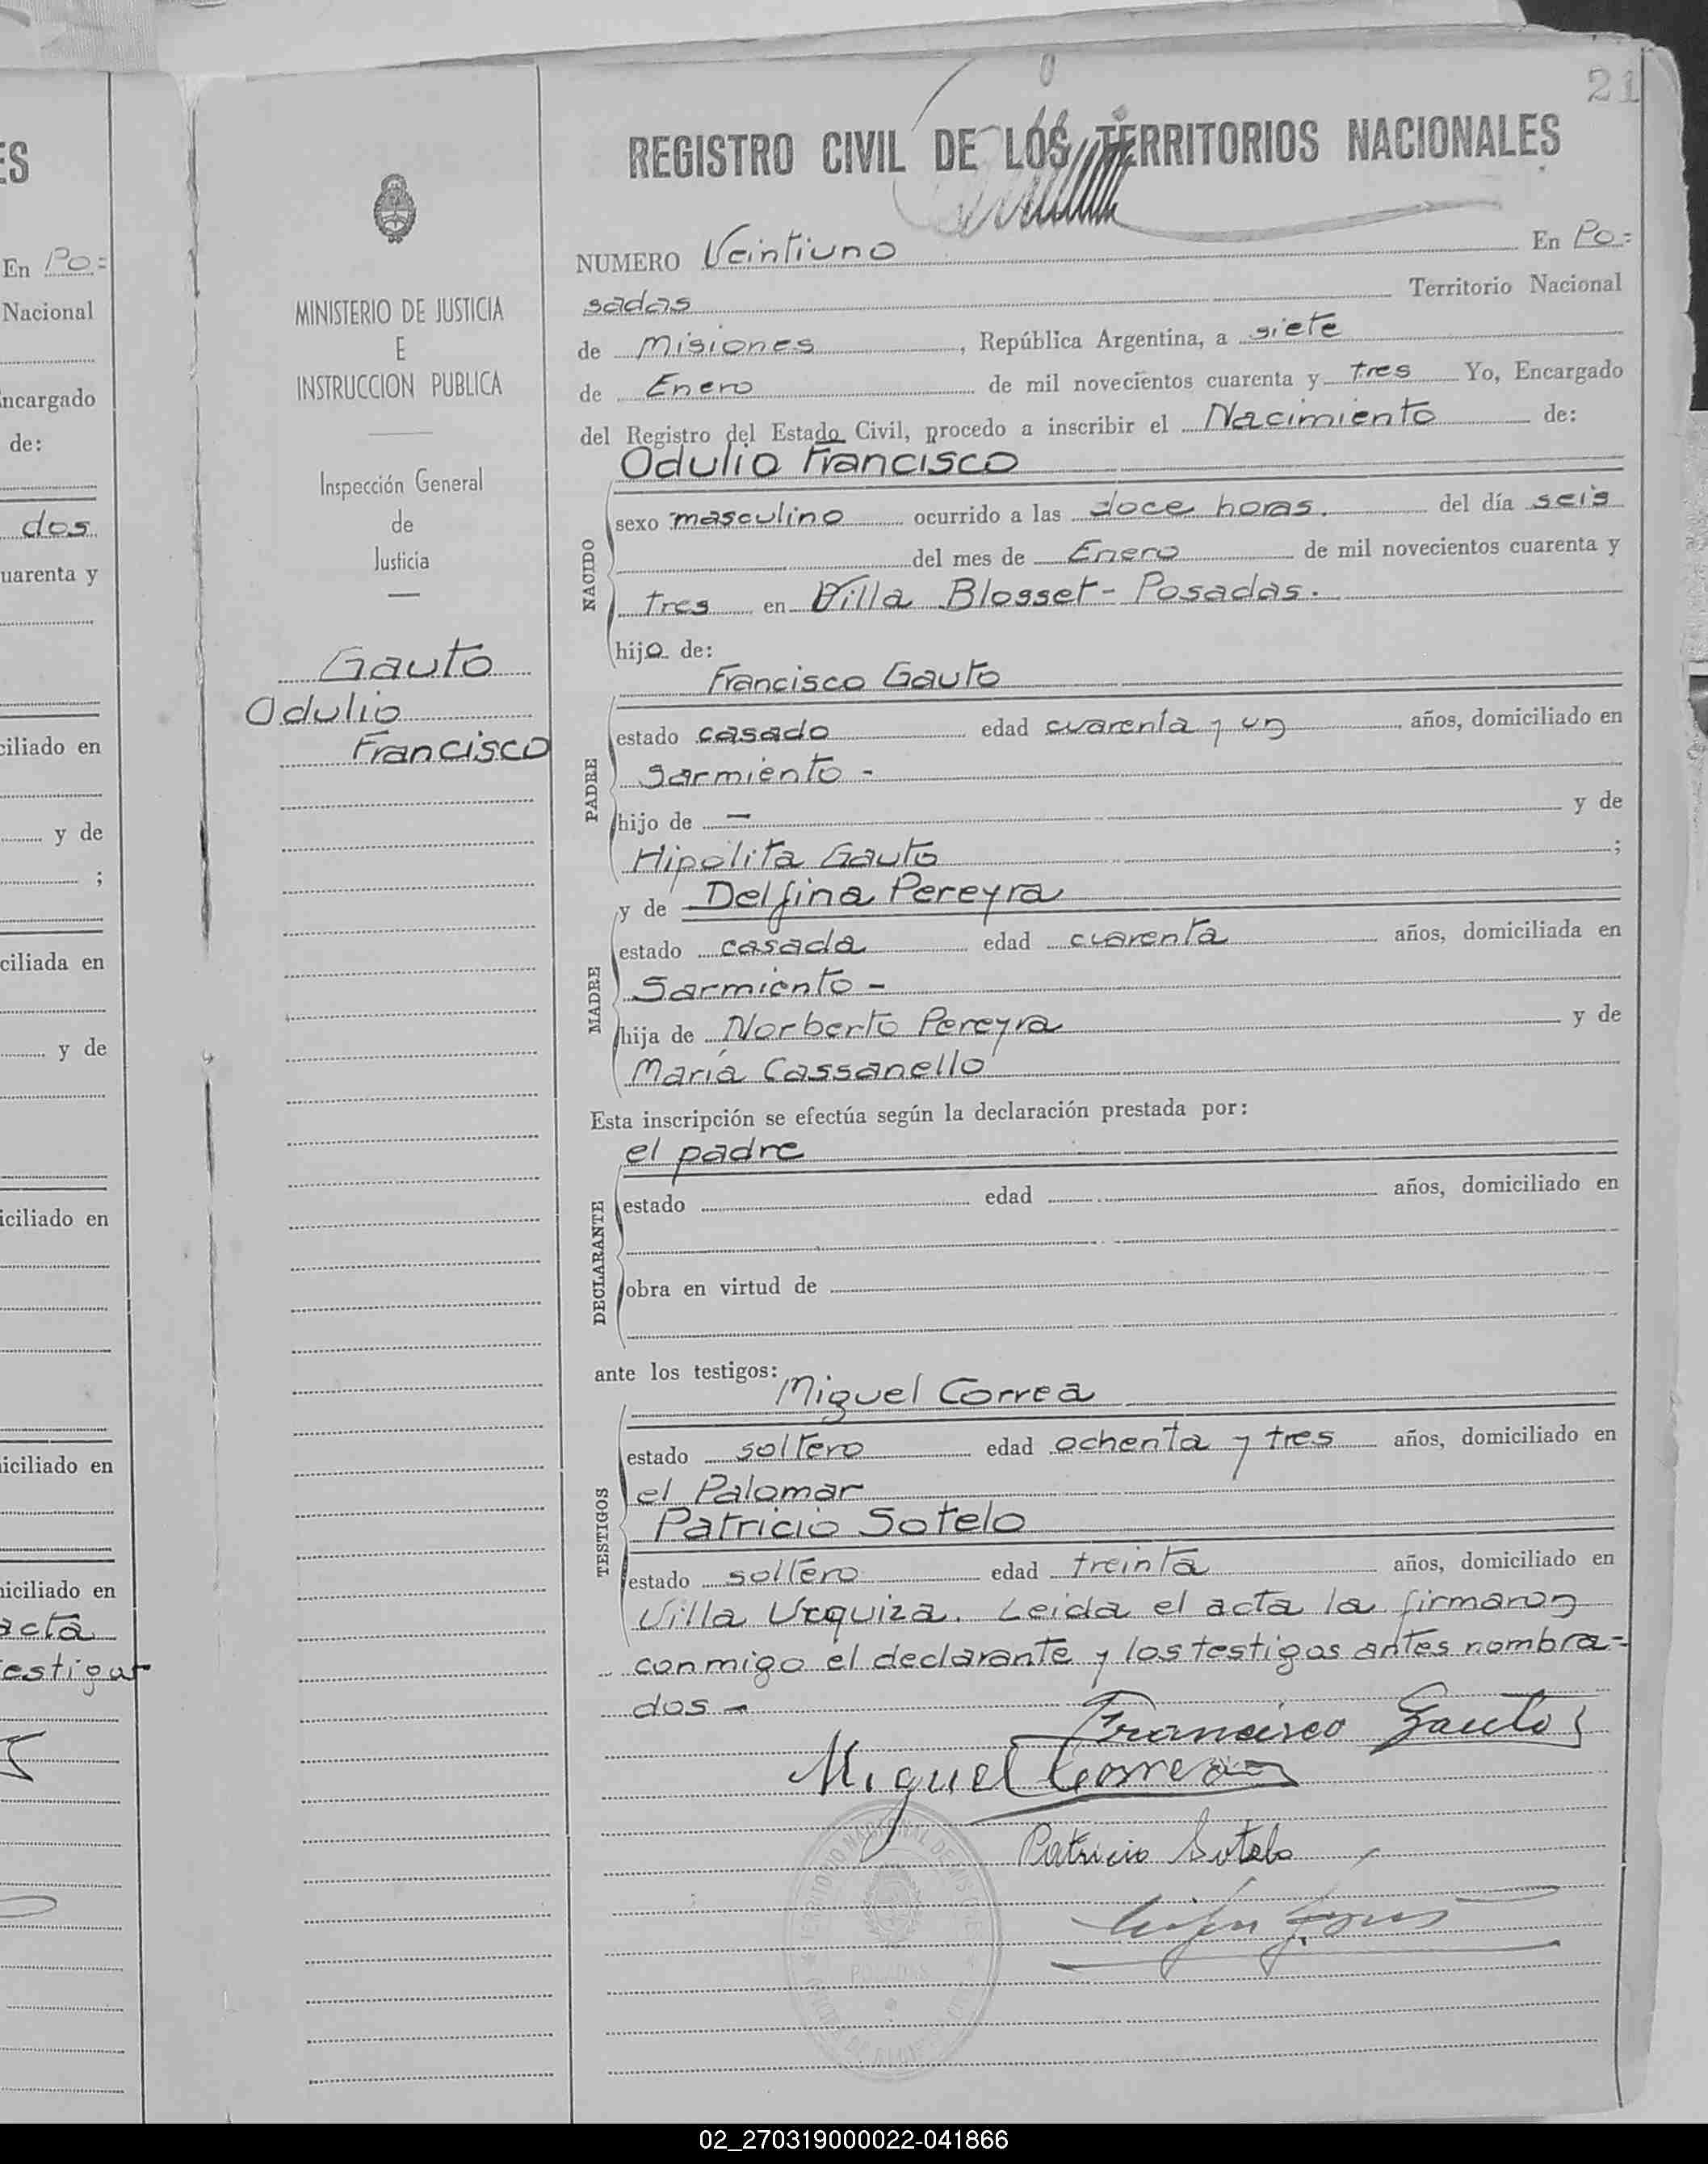 ES
En Po=
Nacional
ncargado
de:
dos
uarenta y
ciliado en
y de
;
ciliada en
y de
iciliado en
iciliado en
niciliado en
acta
estigos
MINISTERIO DE JUSTICIA
E
INSTRUCCION PUBLICA
Inspección General
de
Justicia
Gauto
Odulio
Francisco
21
REGISTRO CIVIL DE LOS TERRITORIOS NACIONALES
NUMERO Veintiuno En Po=
sadas Territorio Nacional
de Misiones, República Argentina, a siete
de Enero de mil novecientos cuarenta y tres Yo, Encargado
del Registro del Estado Civil, procedo a inscribir el Nacimiento de:
Odulio Francisco
NACIDO
sexo masculino ocurrido a las doce horas. del día seis
del mes de Enero de mil novecientos cuarenta y
tres en Villa Blosset - Posadas.
hijo de:
Francisco Gauto
PADRE
estado casado edad cuarenta y un años, domiciliado en
Sarmiento -
hijo de — y de
Hipólita Gauto ;
y de Delfina Pereyra
MADRE
estado casada edad cuarenta años, domiciliada en
Sarmiento -
hija de Norberto Pereyra y de
María Cassanello
Esta inscripción se efectúa según la declaración prestada por:
el padre
DECLARANTE
estado edad años, domiciliado en
obra en virtud de
ante los testigos:
Miguel Correa
TESTIGOS
estado soltero edad ochenta y tres años, domiciliado en
el Palomar
Patricio Sotelo
estado soltero edad treinta años, domiciliado en
Villa Urquiza. Leida el acta la firmaron
conmigo el declarante y los testigos antes nombra=
dos -
Francisco Gauto
Miguel Correa
Patricio Sotelo
POSADAS
02_270319000022-041866